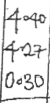 4.40
4.27
0.30